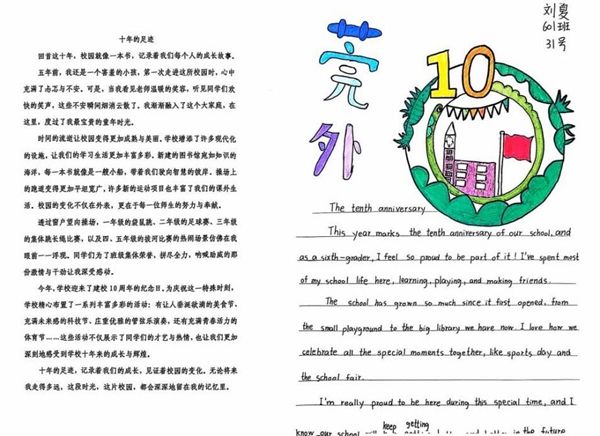 十年的足迹
回首这十年，校园就像一本书，记录着我们每个人的成长故事。
五年前，我还是一个害羞的小孩，第一次走进这所校园时，心中
充满了忐忑与不安。可是，当我看见老师温暖的笑容，听见同学们欢
快的笑声，这些不安瞬间烟消云散了。我渐渐融入了这个大家庭，在
这里，度过了我最宝贵的童年时光。
时间的流逝让校园变得更加成熟与美丽。学校增添了许多现代化
的设施，让我们的学习生活更加丰富多彩。新建的图书馆宛如知识的
海洋，每一本书就像是一艘小船，带着我们驶向智慧的彼岸。操场上
的跑道变得更加平坦宽广，许多新的运动项目也丰富了我们的课外生
活。校园的变化不仅在外表，更在于每一位师生的努力与奉献。
透过窗户望向操场，一年级的袋鼠跳、二年级的足球赛、三年级
的集体跳长绳比赛，以及四、五年级的拔河比赛的热闹场景仿佛在我
眼前一一浮现。同学们为了班级集体荣誉，拼尽全力，呐喊助威的那
份激情与干劲让我深受感动。
今年，学校迎来了建校 10 周年的纪念日。为庆祝这一特殊时刻，
学校精心布置了一系列丰富多彩的活动：有让人垂涎欲滴的美食节、
充满未来感的科技节、庄重优雅的管弦乐演奏，还有充满青春活力的
体育节……这些活动不仅展示了同学们的才艺与热情，也让我们更加
深刻地感受到学校十年来的成长与辉煌。
十年的足迹，记录着我们的成长，见证着校园的变化。无论将来
我走得多远，这段时光，这片校园，都会深深地留在我的记忆里。
刘夏
601班
31号
莞外
10
The tenth anniversary
This year marks the tenth anniversary of our school, and
as a sixth-grader, I feel so proud to be part of it! I've spent most
of my school life here, learning, playing, and making friends.
The school has grown so much since it first opened, from
the small playground to the big library we have now. I love how we
celebrate all the special moments together, like sports day and
the school fair.
I'm really proud to be here during this special time, and I
keep getting
know our school will better and better in the future